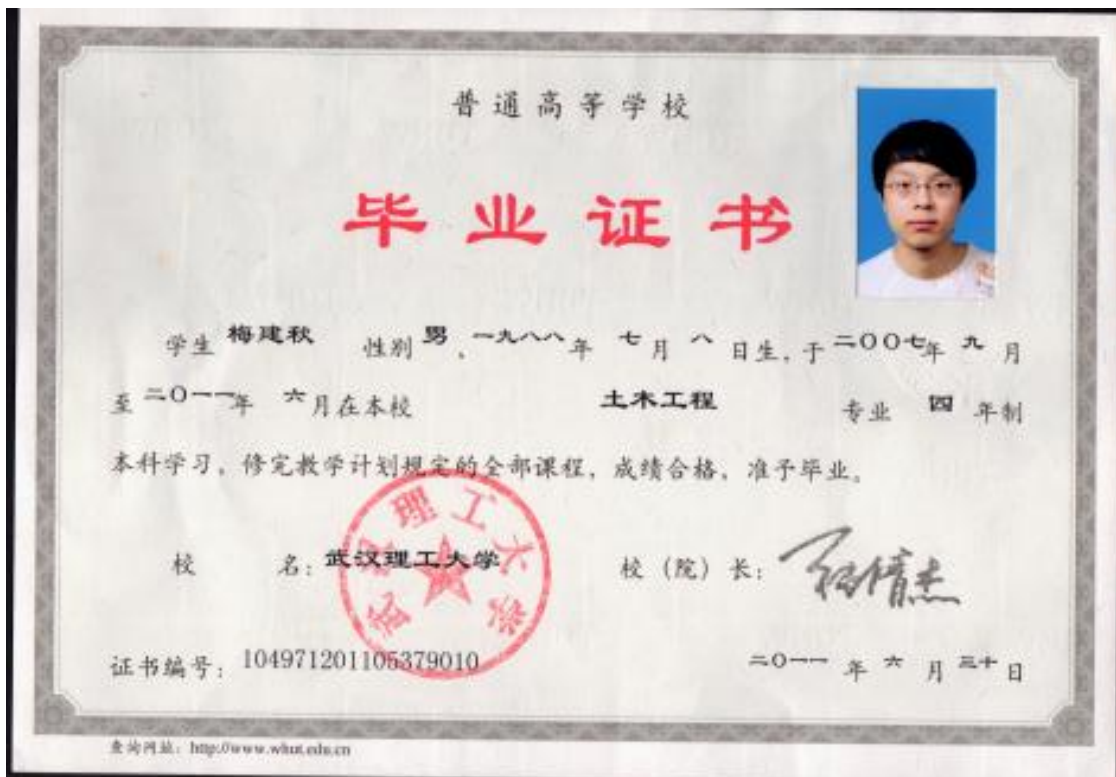 普通高等学校
毕业证书
学生 梅建秋 性别 男 、一九八八年 七月 八日生, 于 二〇〇七年 九月
至 二〇一一年 六月在本校 土木工程 专业 四年制
本科学习, 修完教学计划规定的全部课程, 成绩合格, 准予毕业。
校 名: 武汉理工大学 校 (院) 长:
武汉理工大学
证书编号: 104971201105379010 二〇一一年 六月 三十日
查询网址: http://www.whut.edu.cn